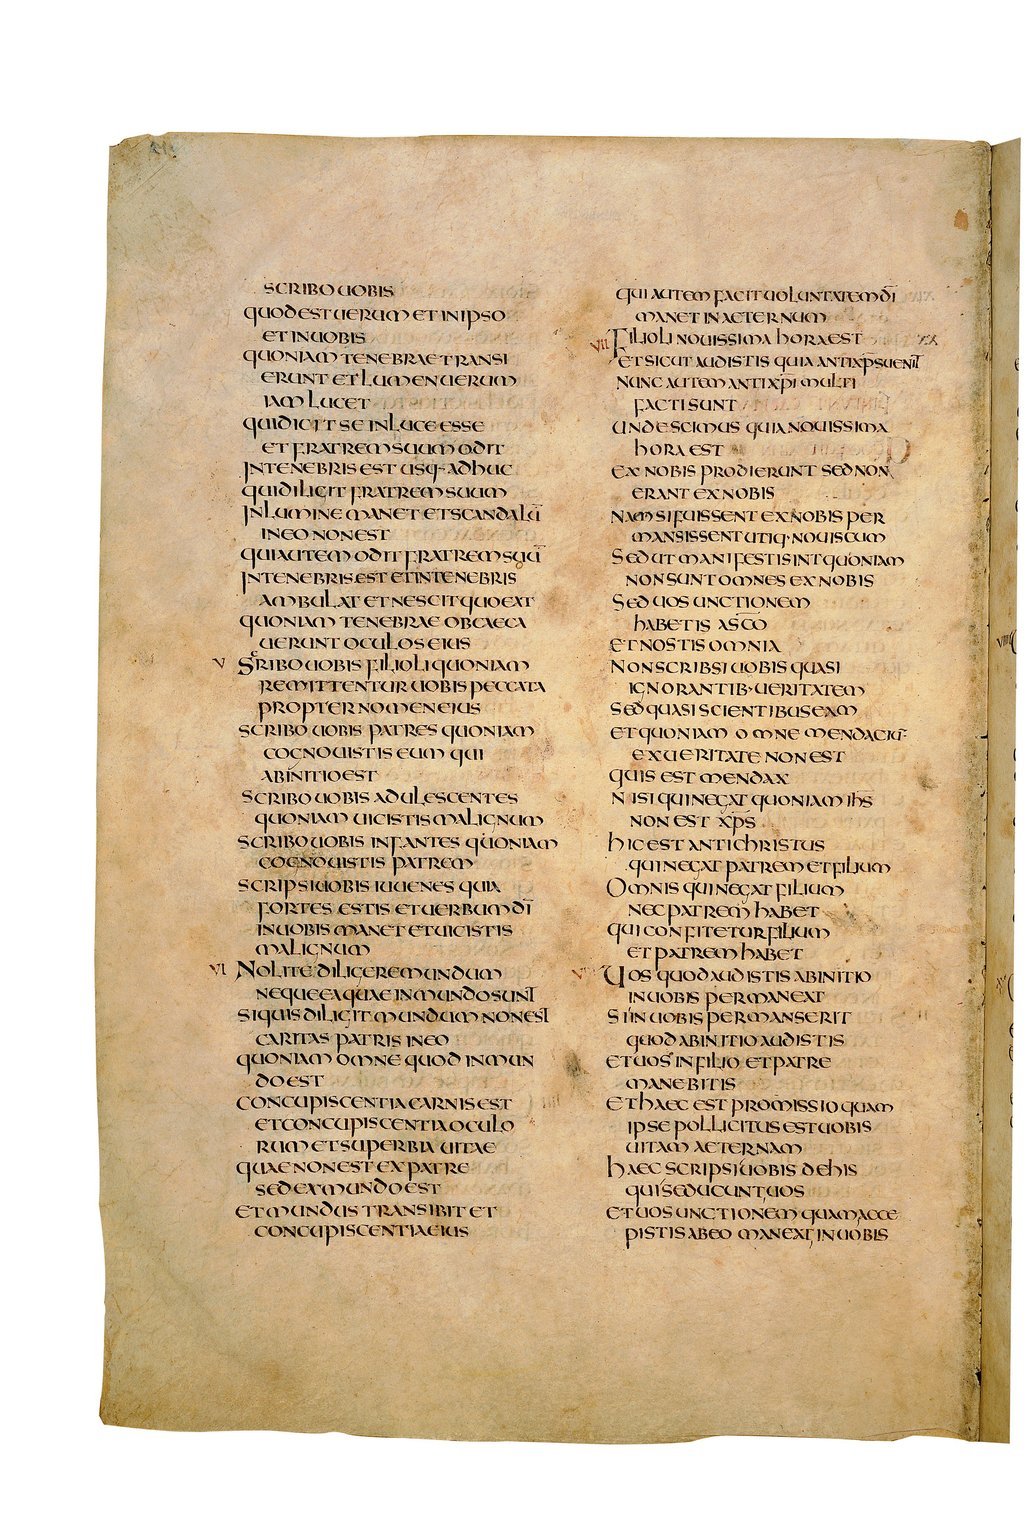 SCRIBO UOBIS
QUOD EST UERUM ET IN IPSO
ET IN UOBIS
QUONIAM TENEBRAE TRANSI
ERUNT ET LUMEN UERUM
IAM LUCET
QUI DICIT SE IN LUCE ESSE
ET FRATREM SUUM ODIT
IN TENEBRIS EST USQ· ADHUC
QUI DILIGIT FRATREM SUUM
IN LUMINE MANET ET SCANDALŪ
IN EO NON EST
QUI AUTEM ODIT FRATREM SUŪ
IN TENEBRIS EST ET IN TENEBRIS
AMBULAT ET NESCIT QUO EAT
QUONIAM TENEBRAE OBCAECA
UERUNT OCULOS EIUS
V SCRIBO UOBIS FILIOLI QUONIAM
REMITTENTUR UOBIS PECCATA
PROPTER NOMEN EIUS
SCRIBO UOBIS PATRES QUONIAM
COGNOUISTIS EUM QUI
AB INITIO EST
SCRIBO UOBIS ADULESCENTES
QUONIAM UICISTIS MALIGNUM
SCRIBO UOBIS INFANTES QUONIAM
COGNOUISTIS PATREM
SCRIPSI UOBIS IUUENES QUIA
FORTES ESTIS ET UERBUM DĪ
IN UOBIS MANET ET UICISTIS
MALIGNUM
VI NOLITE DILIGERE MUNDUM
NEQUE EA QUAE IN MUNDO SUNT
SI QUIS DILIGIT MUNDUM NON EST
CARITAS PATRIS IN EO
QUONIAM OMNE QUOD IN MUN
DO EST
CONCUPISCENTIA CARNIS EST
ET CONCUPISCENTIA OCULO
RUM ET SUPERBIA UITAE
QUAE NON EST EX PATRE
SED EX MUNDO EST
ET MUNDUS TRANSIBIT ET
CONCUPISCENTIA EIUS
QUI AUTEM FACIT UOLUNTATEM DĪ
MANET IN AETERNUM
VII FILIOLI NOUISSIMA HORA EST
ET SICUT AUDISTIS QUIA ANTIXP̄S UENIT
NUNC AUTEM ANTIXP̄I MULTI
FACTI SUNT
UNDE SCIMUS QUIA NOUISSIMA
HORA EST
EX NOBIS PRODIERUNT SED NON
ERANT EX NOBIS
NAM SI FUISSENT EX NOBIS PER
MANSISSENT UTIQ· NOUISCUM
SED UT MANIFESTI SINT QUONIAM
NON SUNT OMNES EX NOBIS
SED UOS UNCTIONEM
HABETIS A SC̄O
ET NOSTIS OMNIA
NON SCRIBSI UOBIS QUASI
IGNORANTIB· UERITATEM
SED QUASI SCIENTIBUS EAM
ET QUONIAM OMNE MENDACIŪ
EX UERITATE NON EST
QUIS EST MENDAX
NISI QUI NEGAT QUONIAM IH̄S
NON EST XP̄S
HIC EST ANTICHRISTUS
QUI NEGAT PATREM ET FILIUM
OMNIS QUI NEGAT FILIUM
NEC PATREM HABET
QUI CONFITETUR FILIUM
ET PATREM HABET
UOS QUOD AUDISTIS AB INITIO
IN UOBIS PERMANEAT
SI IN UOBIS PERMANSERIT
QUOD AB INITIO AUDISTIS
ET UOS IN FILIO ET PATRE
MANEBITIS
ET HAEC EST PROMISSIO QUAM
IPSE POLLICITUS EST UOBIS
UITAM AETERNAM
HAEC SCRIPSI UOBIS DE HIS
QUI SEDUCUNT UOS
ET UOS UNCTIONEM QUAM ACCE
PISTIS AB EO MANEAT IN UOBIS